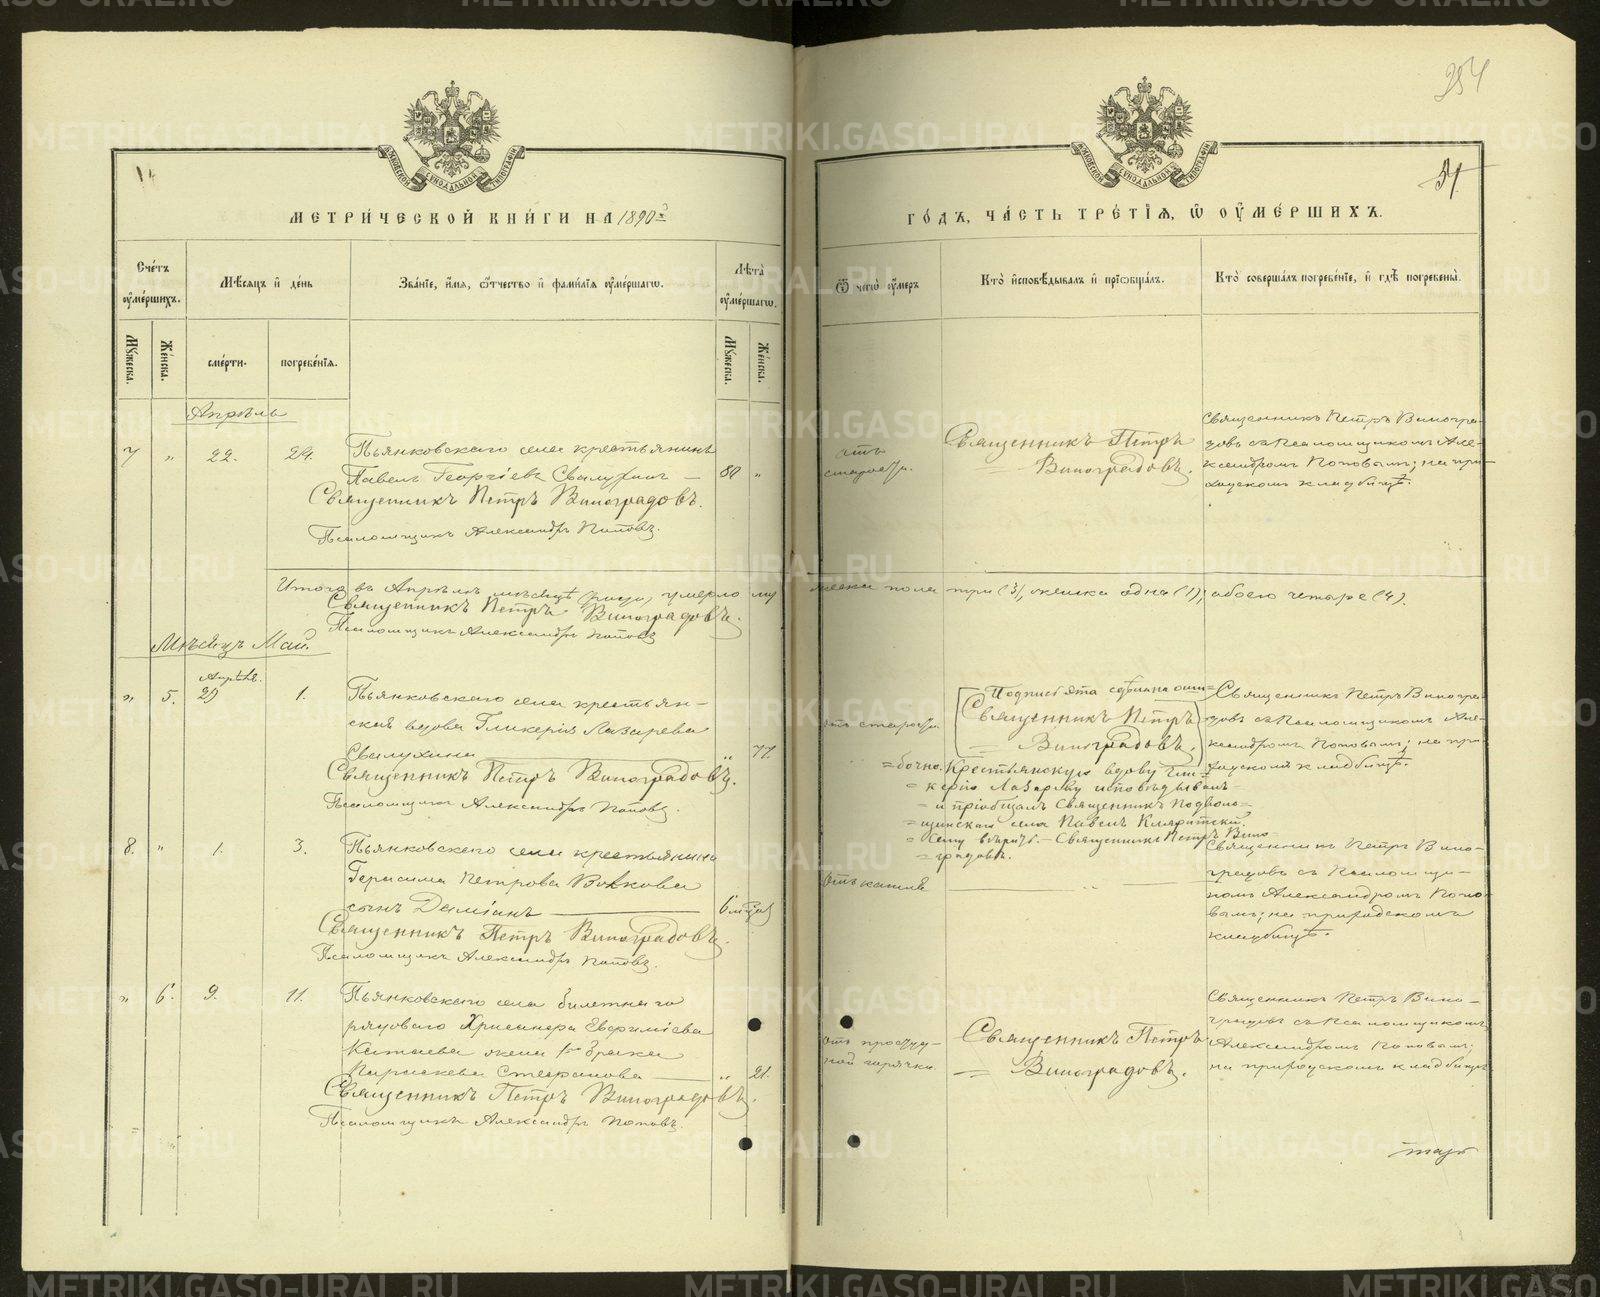 254
34
МЕТРИ́ЧЕСКОЙ КНИ́ГИ НА 1890й
ГО́ДЪ, ЧА́СТЬ ТРЕ́ТІЯ, Ѡ ОУМЕ́РШИХЪ.
Сче́тъ оуме́ршихъ.
Мѣ́сяцъ и де́нь
Зва́ніе, и́мя, ѻ́тчество и фами́лія оуме́ршагѡ.
Лѣта̀ оуме́ршагѡ.
Ѿ чегѡ̀ оу́меръ
Кто̀ исповѣ́дывалъ и пріѡбща́лъ.
Кто̀ соверша́лъ погребе́ніе, и гдѣ̀ погребены̀.
Му́жеска.
Же́нска.
сме́рти.
погребе́нія.
Му́жеска.
Же́нска.
Апрѣль
7 " 22. 24. Пьянковскаго села крестьянинъ
Павелъ Георгіевъ Свалухинъ — 80 "
Священникъ Петръ Виноградовъ.
Псаломщикъ Александръ Поповъ.
отъ
старости.
Священникъ Петръ
Виноградовъ.
Священникъ Петръ Виногра-
довъ съ Псаломщикомъ Але-
ксандромъ Поповымъ; на при-
ходскомъ кладбищѣ.
Итого въ Апрѣлѣ мѣсяцѣ умерло му
жеска пола три (3), женска одна (1), обоего четыре (4).
Священникъ Петръ Виноградовъ.
Псаломщикъ Александръ Поповъ
Мѣсяцъ Май.
Апрѣль.
" 5. 29 1. Пьянковскаго села крестьян-
ская вдова Гликерія Лазарева
Свалухина " 77.
Священникъ Петръ Виноградовъ.
Псаломщикъ Александръ Поповъ.
отъ старости.
Подпись эта сдѣлана оши=
Священникъ Петръ
Виноградовъ.
=бочно. Крестьянскую вдову Гли-
= керію Лазареву исповѣдывалъ
= и пріобщалъ Священникъ Подволо-
= щинскаго села Павелъ
= Сему вѣритъ - Священникъ Петръ Вино-
= градовъ.
Священникъ Петръ Виногра-
довъ съ Псаломщикомъ Але-
ксандромъ Поповымъ; на при-
ходскомъ кладбищѣ.
8. " 1. 3. Пьянковскаго села крестьянина
Герасима Петрова Волкова
сынъ Даміанъ — 6 мѣсяц
Священникъ Петръ Виноградовъ.
Псаломщикъ Александръ Поповъ.
Отъ кашля
Священникъ Петръ Вино-
градовъ съ Псаломщи-
комъ Александромъ Попо-
вымъ; на приходскомъ
кладбищѣ.
" 6. 9. 11. Пьянковскаго села билетнаго
рядоваго Хрисанфа Евфиміева
Катаева жена 1го брака
Параскева Стефанова — " 21.
Священникъ Петръ Виноградовъ.
Псаломщикъ Александръ Поповъ.
отъ простуд-
ной горячки.
Священникъ Петръ
= Виноградовъ.
Священникъ Петръ Вино-
градовъ съ Псаломщикомъ
Александромъ Поповымъ;
на приходскомъ кладбищѣ